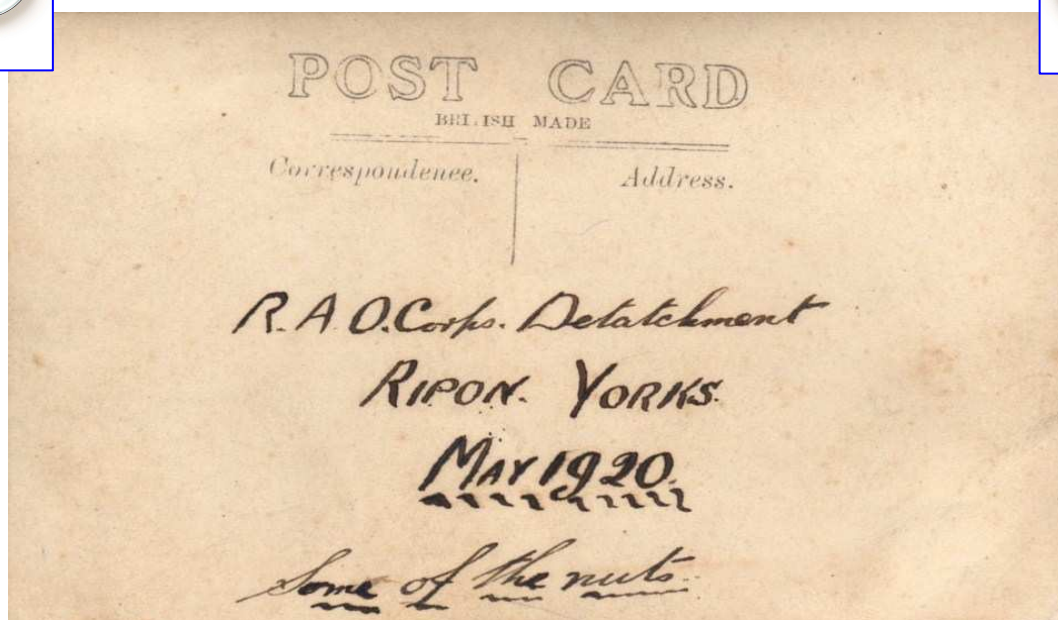 POST CARD
BRITISH MADE
Correspondence. Address.
R.A.O.Corps. Detatchment
RIPON. YORKS.
MAY 1920.
Some of the nuts.